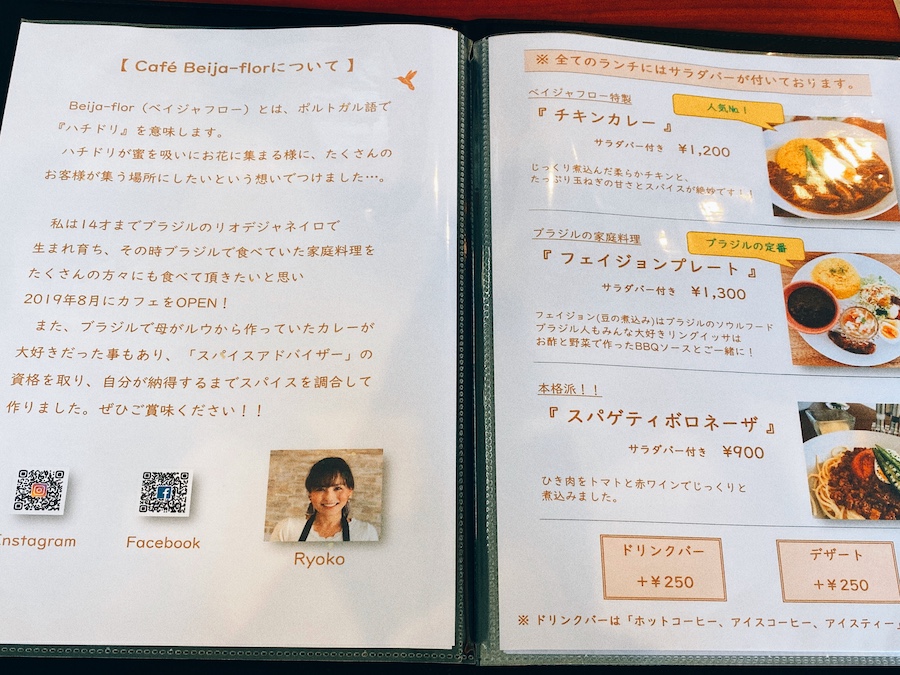 【 Café Beija-florについて 】
Beija-flor（ベイジャフロー）とは、ポルトガル語で
『ハチドリ』を意味します。
ハチドリが蜜を吸いにお花に集まる様に、たくさんの
お客様が集う場所にしたいという想いでつけました…。
私は14才までブラジルのリオデジャネイロで
生まれ育ち、その時ブラジルで食べていた家庭料理を
たくさんの方々にも食べて頂きたいと思い
2019年8月にカフェをOPEN！
また、ブラジルで母がルウから作っていたカレーが
大好きだった事もあり、「スパイスアドバイザー」の
資格を取り、自分が納得するまでスパイスを調合して
作りました。ぜひご賞味ください！！
Instagram
Facebook
Ryoko
※ 全てのランチにはサラダバーが付いております。
ベイジャフロー特製
人気№1！
『 チキンカレー 』
サラダバー付き ￥1,200
じっくり煮込んだ柔らかチキンと、
たっぷり玉ねぎの甘さとスパイスが絶妙です！！
ブラジルの家庭料理
ブラジルの定番
『 フェイジョンプレート 』
サラダバー付き ￥1,300
フェイジョン(豆の煮込み)はブラジルのソウルフード
ブラジル人もみんな大好きリングイッサは
お酢と野菜で作ったBBQソースとご一緒に！
本格派！！
『 スパゲティボロネーザ 』
サラダバー付き ￥900
ひき肉をトマトと赤ワインでじっくりと
煮込みました。
ドリンクバー
＋￥250
デザート
＋￥250
※ ドリンクバーは「ホットコーヒー、アイスコーヒー、アイスティー